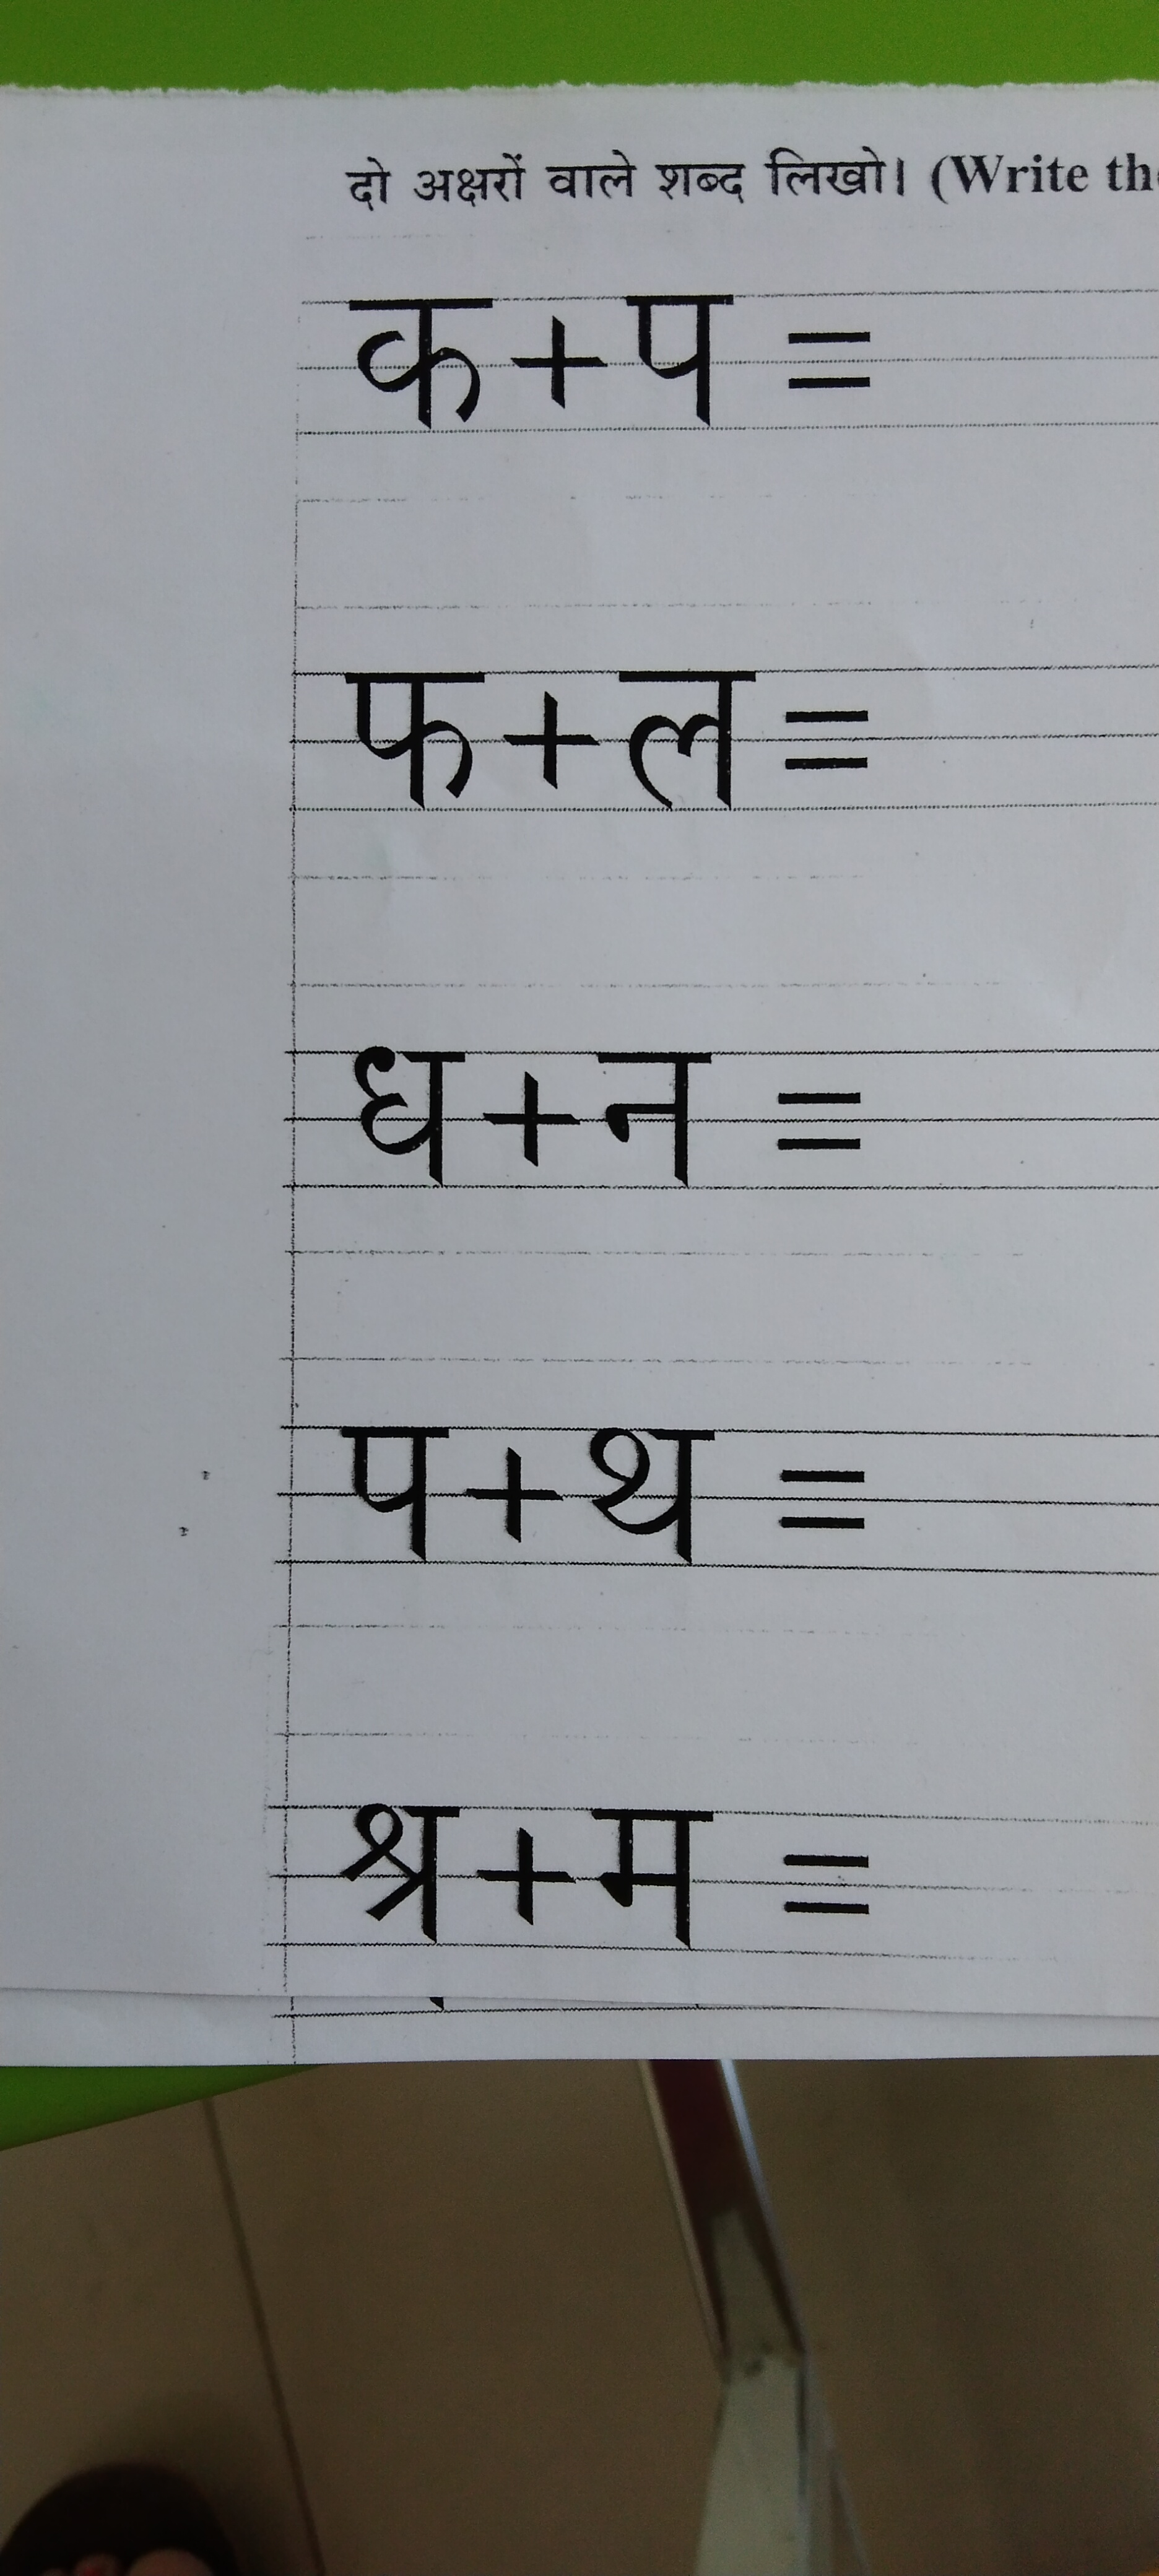 दो अक्षरों वाले शब्द लिखो। (Write
क + प =
फ + ल =
ध + न =
प + थ =
श्र + म =